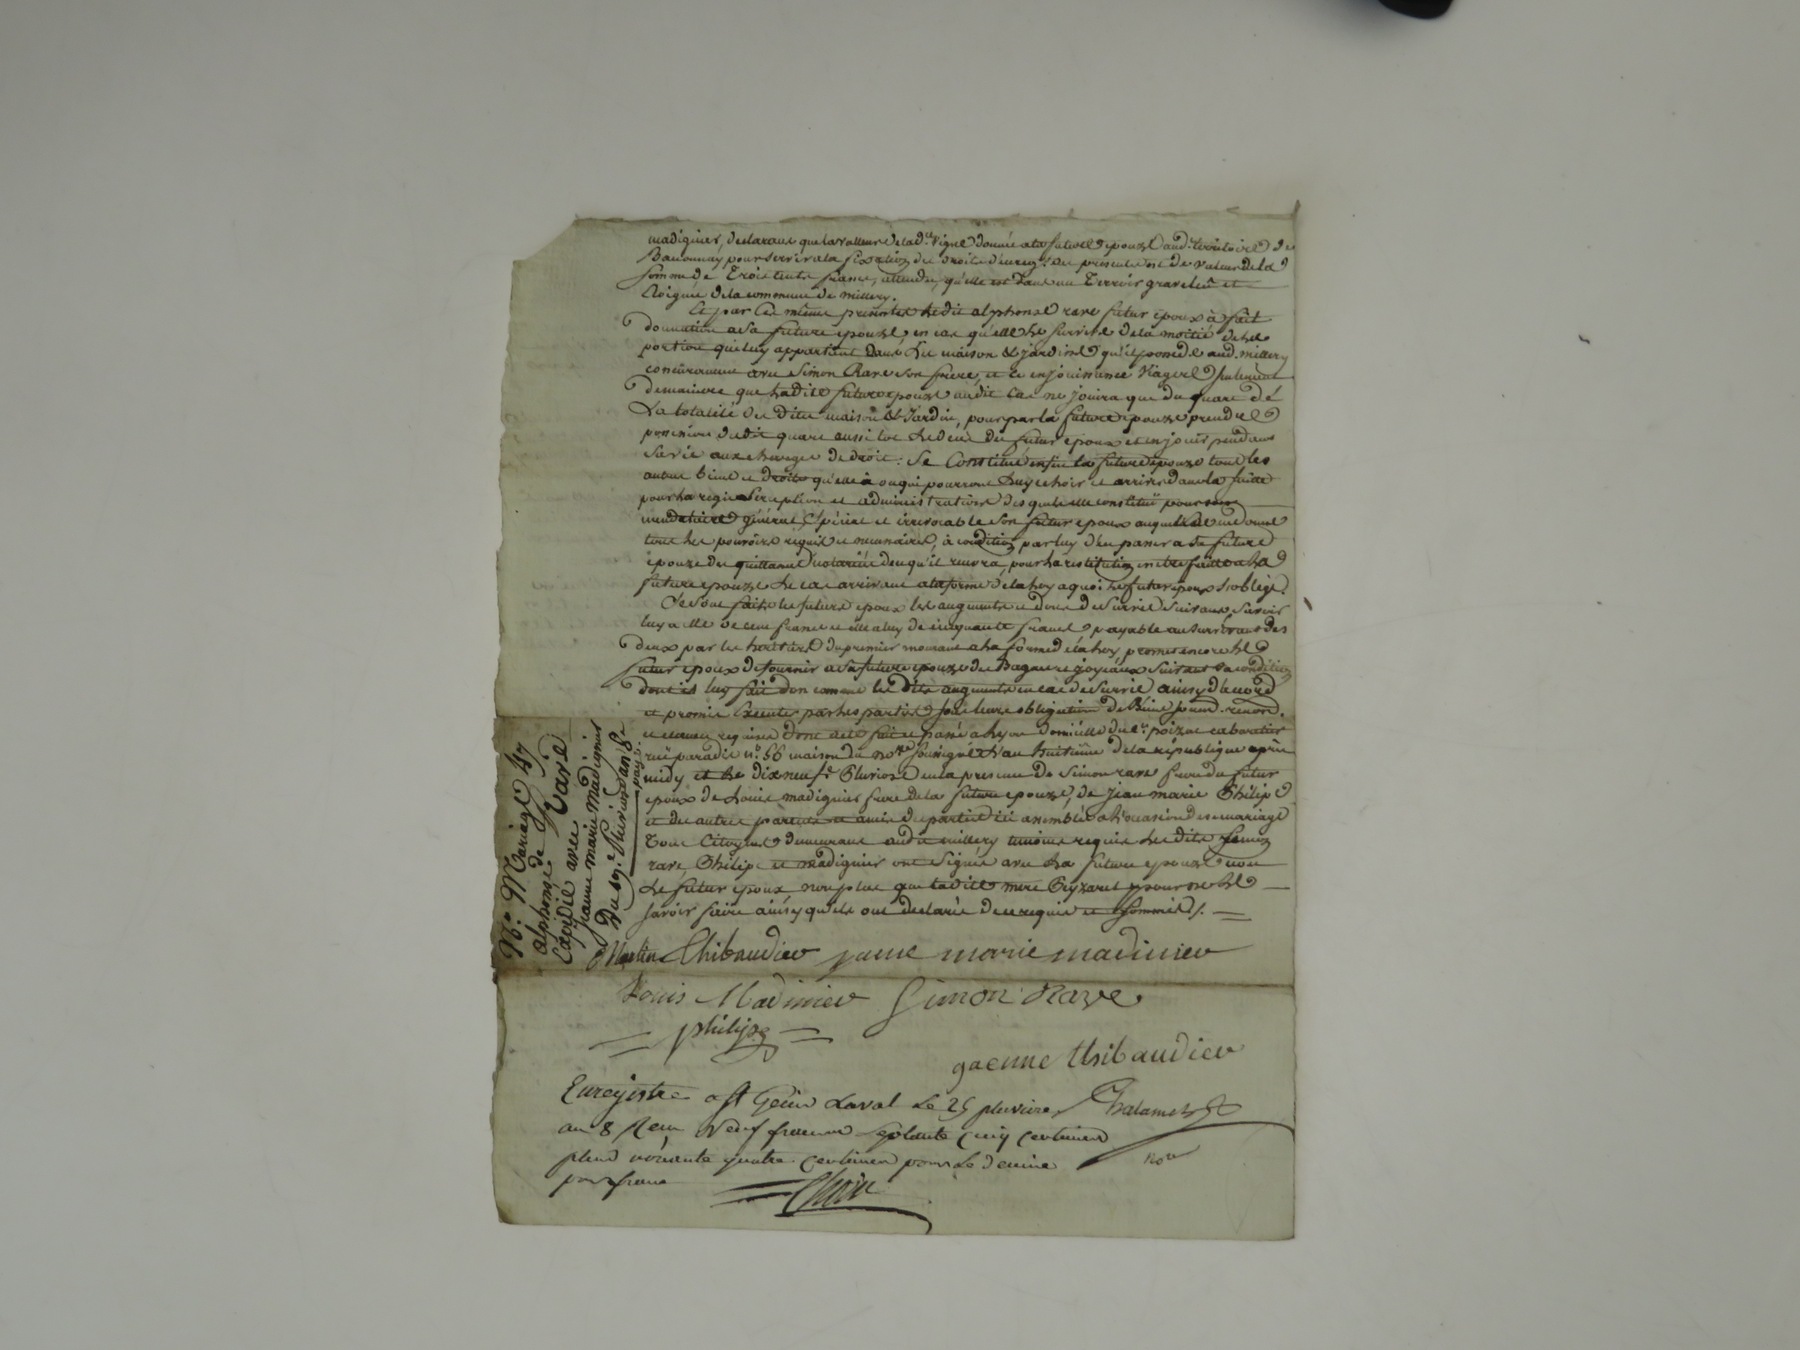 madignier, declarant que la valleur de lad.te vigne donnée a la future epouse aud. territoire de
pour servir a la fixation du droit d'enreg.t du presente est de valeur de la
somme de trois cents francs, attendu qu'elle est dans un terroir graveleux et
éloignée de la commune de millery.
Et par ces mêmes presentes ledit alphonse rave futur epoux à fait
donnation a sa future epouse en cas qu'elle le survive de la moitié de la
portion qui luy appartient dans les maison & jardins qu'il possede aud. millery
concurament avec Simon Rave son frere, et ce en jouissance viagere seulement
de maniere que ladite future epouse audit cas ne jouira que du quart dé
La totalité des dits maison & jardin, pour par la future epouse prendre
possession dudit quart aussi tot le deces du futur epoux et en jouir pendant
sa vie aux charges de droit: Se Constitue enfin la future epouse tous les
autres biens et droits qu'elle à ou qui pourront luy echoir et arriver dans la suitte
pour la régie perception et administration desquels elle constitue pour son
mandataire général, spécial et irrévocable son futur epoux auquel elle en donne
tous les pouvoirs requis et necessaires, à condition par luy d'en passer a sa future
epouse des quittances notariées de ce qu'il recevra, pour la restitution en etre faitte a la
future epouse le cas arrivant a la forme de la loy a quoi le futur epoux s'oblige.
Se sont faits les futurs epoux les augments et dons de survie suivants savoir
luy a elle de cent francs et elle a luy de cinquante francs payable au survivant des
deux par les heritiers du premier mourant a la forme de la loy promet encore le
futur epoux de fournir a sa future epouse des Bagues et joyaux suivant sa condition
dont il luy fait don comme les dits augments en cas de survie ainsy d'accord
et promis Executer par les parties sous leurs obligation de Biens soumd. renond.
et clauses requises dont acte fait et passé a lyon domicille du c.n poizat cabaretier
rue paradis n.o 56 maison du no.re soussigné l'an huitième de la république après
midy et le dix neuf.e Pluviose en la presence de Simon rave frere du futur
epoux de Louis madignier frere de la future epouse, de Jean marie Philip
et des autres parents et amis des parties ici assemblés a l'occasion de ce mariage
Tous Citoyens demeurants aud.t millery temoins requis les dits Simon
rave, Philip et madignier ont signés avec la future epouse non
le futur epoux non plus que ladite mere pour ne le
savoir faire ainsy qu'ils ont declarés de ce requis et sommés /.
Martin Thibaudier jeanne marie madinier
Louis Madinier Simon Rave
philip
Thibaudier
Enregistré a St Genis Laval le 25 pluviose
an 8 Reçu neuf francs septante cinq centimes
plus nonante quatre centimes pour le decime
par franc
Thalamel
No.re
M.e Mariage 47
de
alphonse Rave
Capidié avec
Jeanne marie Madignier
Du 19.e Pluviose an 8.e
payé.